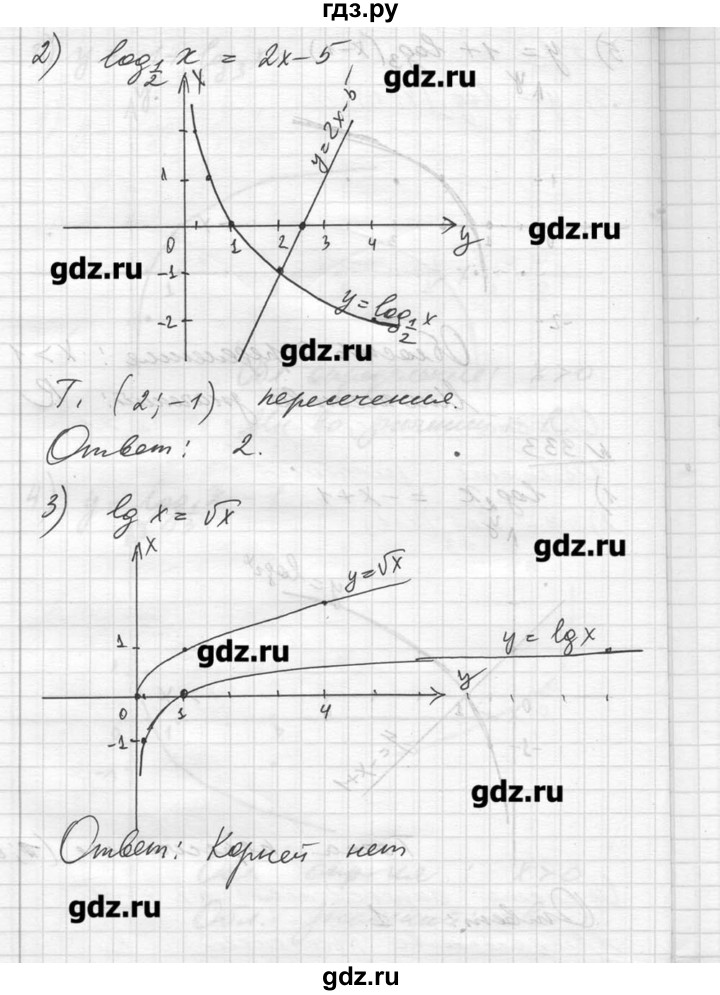 гдз.ру
2) log 1/2 x = 2x-5
x
y=2x-6
gdz.ru
1
gdz.ru
0 1 2 3 4 y
gdz.ru
-1
y=log 1/2 x
-2
gdz.ru
Т. (2;-1) пересечения.
Ответ: 2.
3) lg x = √x
x
gdz.ru
y=√x
1
gdz.ru
y = lg x
y
0 1 4
-1
gdz.ru
Ответ: Корней нет
gdz.ru
gdz.ru